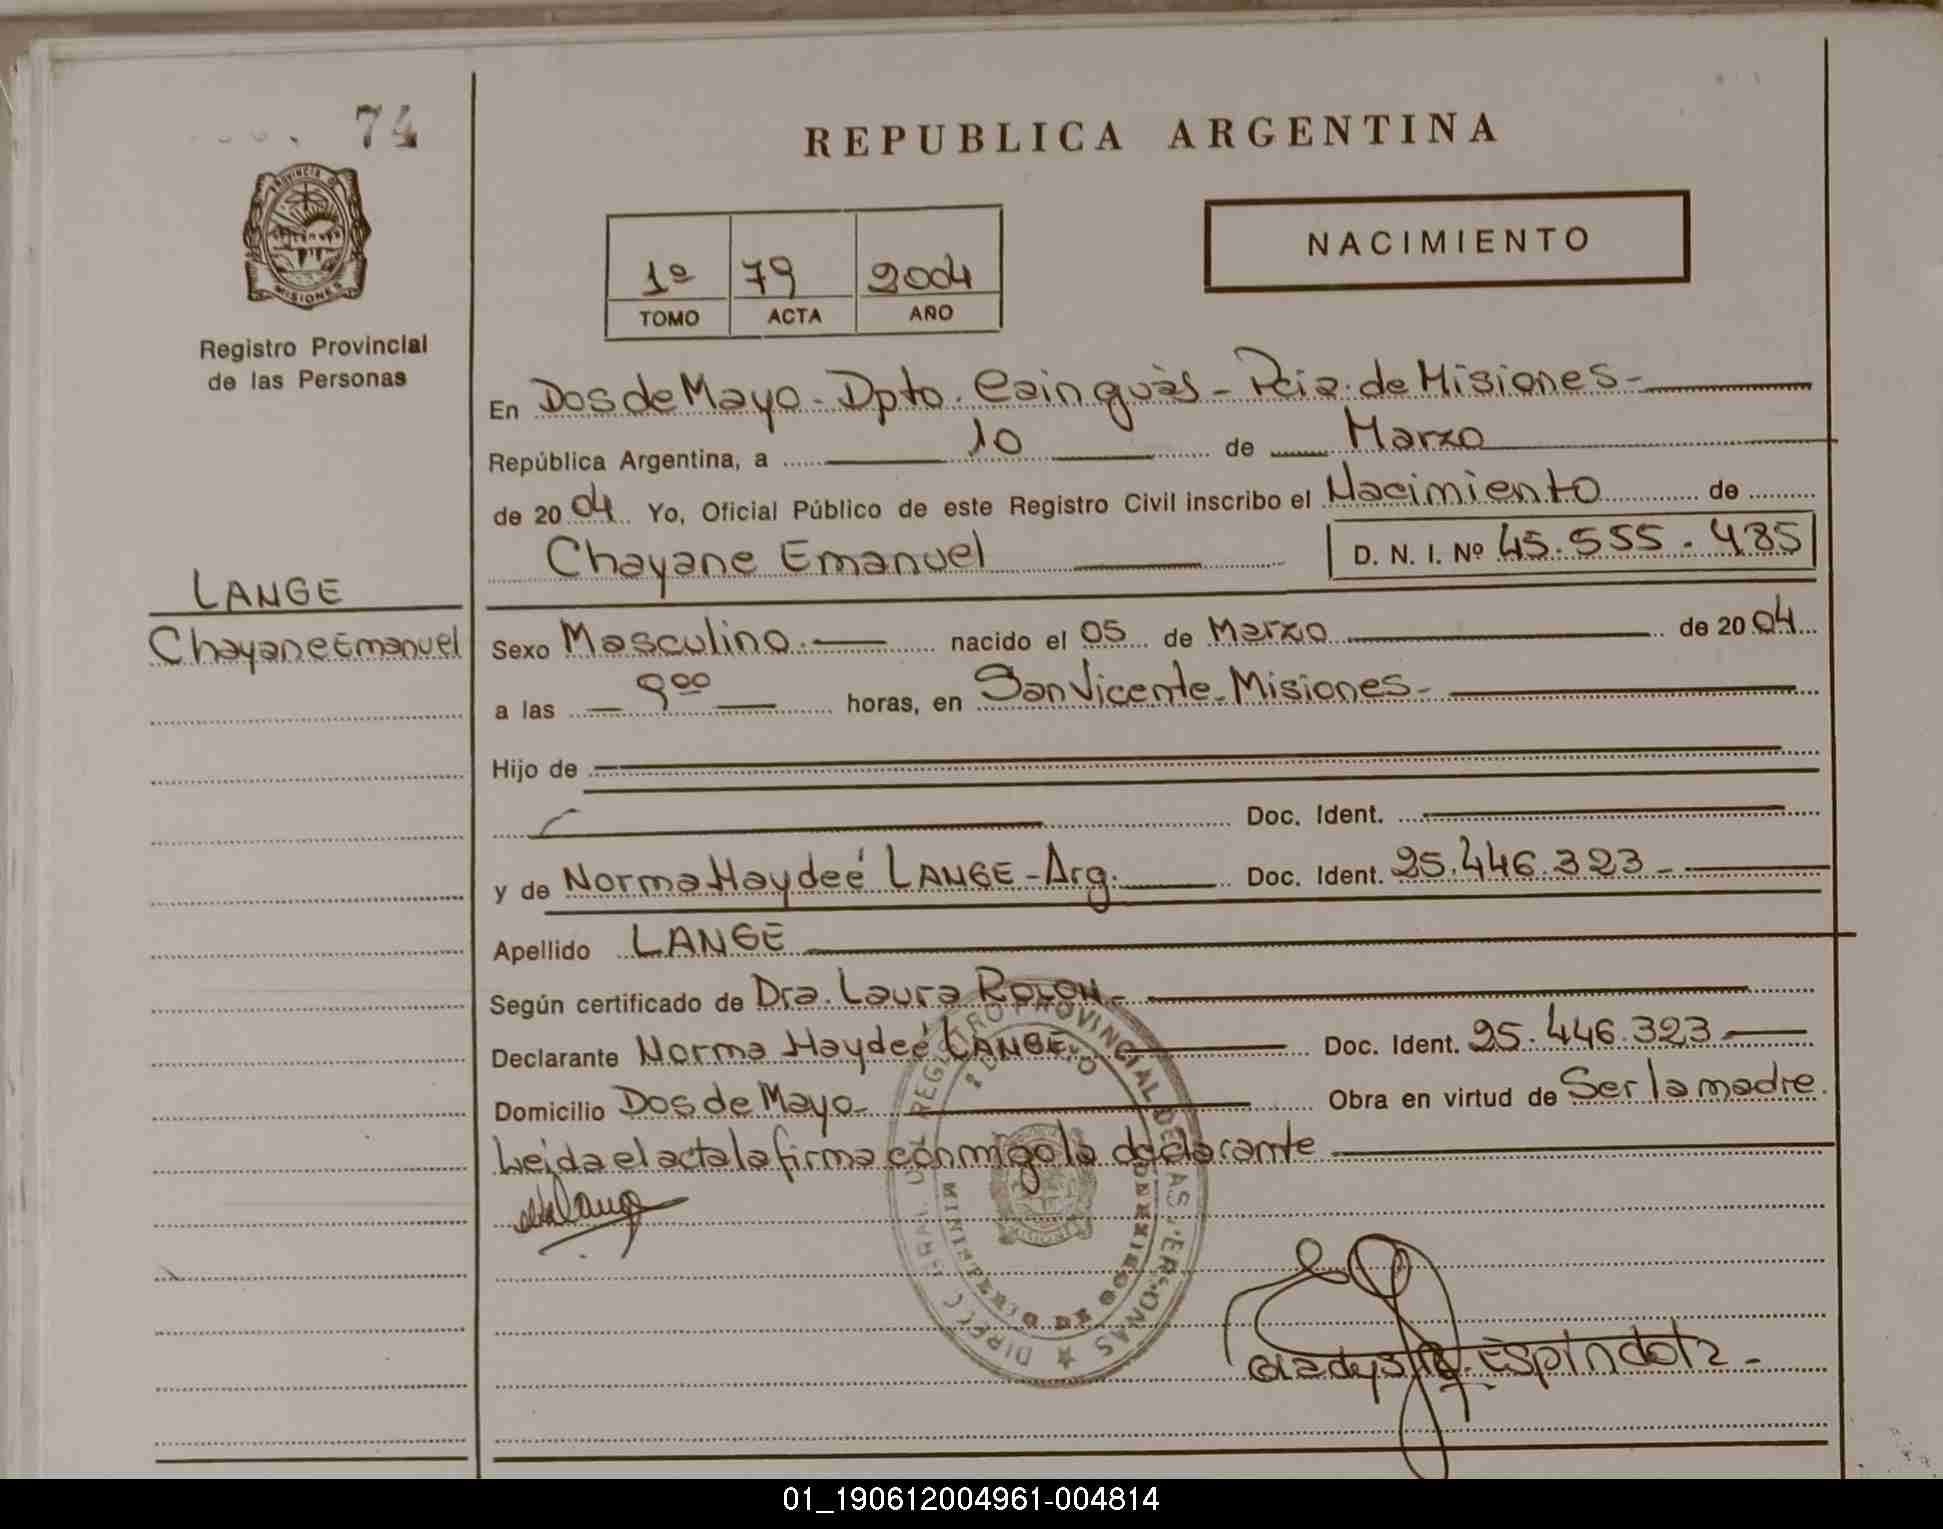 74
PROVINCIA DE
MISIONES
Registro Provincial
de las Personas
REPUBLICA ARGENTINA
1º 79 2004
TOMO ACTA AÑO
NACIMIENTO
En Dos de Mayo - Dpto. Cainguás - Pcia. de Misiones -
República Argentina, a 10 de Marzo
de 2004 Yo, Oficial Público de este Registro Civil inscribo el Nacimiento de
Chayane Emanuel D. N. I. Nº 45.555.485
LANGE
Chayane Emanuel
Sexo Masculino. nacido el 05 de Marzo de 2004
a las 9⁰⁰ horas, en San Vicente - Misiones -
Hijo de
Doc. Ident.
y de Norma Haydeé LANGE - Arg. Doc. Ident. 25.446.323 -
Apellido LANGE
Según certificado de Dra. Laura ROLON -
Declarante Norma Haydeé LANGE. Doc. Ident. 25.446.323
Domicilio Dos de Mayo - Obra en virtud de Ser la madre.
Leída el acta la firma conmigo la declarante
REGISTRO PROVINCIAL DE LAS PERSONAS
MINISTERIO DE GOBIERNO
Gladys Espindola -
01_190612004961-004814